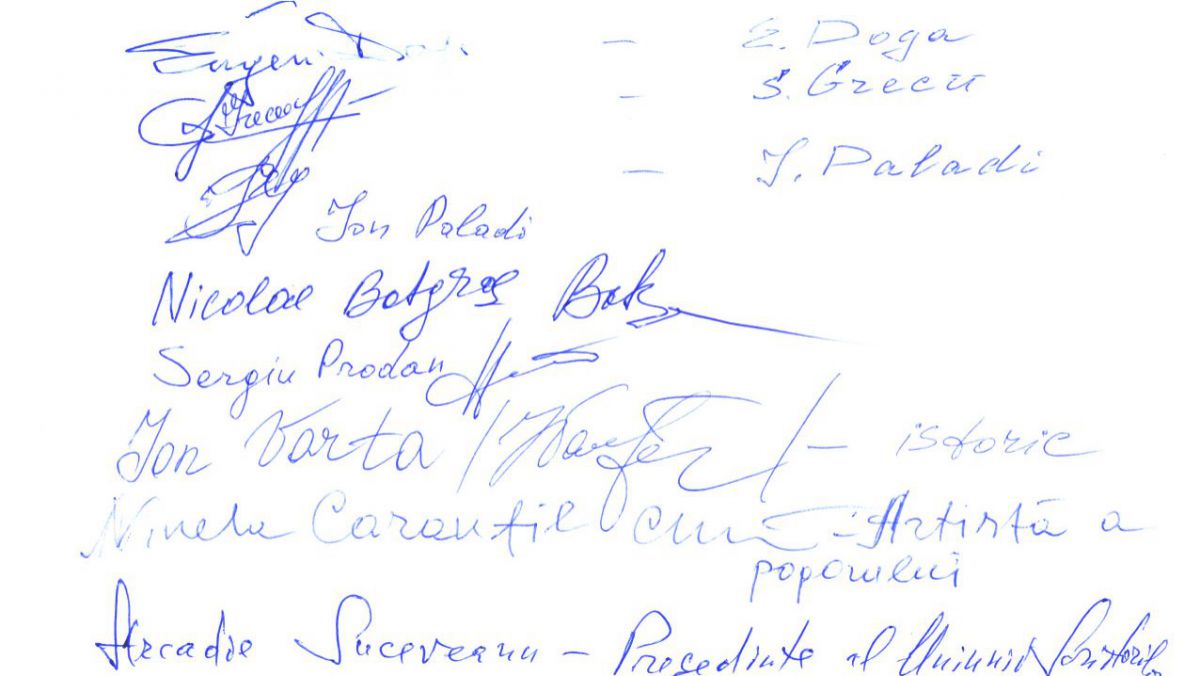 Eugen Doga – E. Doga
– S. Grecu
– I. Paladi
Ion Paladi
Nicolae Botgros
Sergiu Prodan
Ion Varta – istoric
Ninela Caranfil – Artistă a
poporului
Arcadie Suceveanu – Președinte al Uniunii Scriitorilor